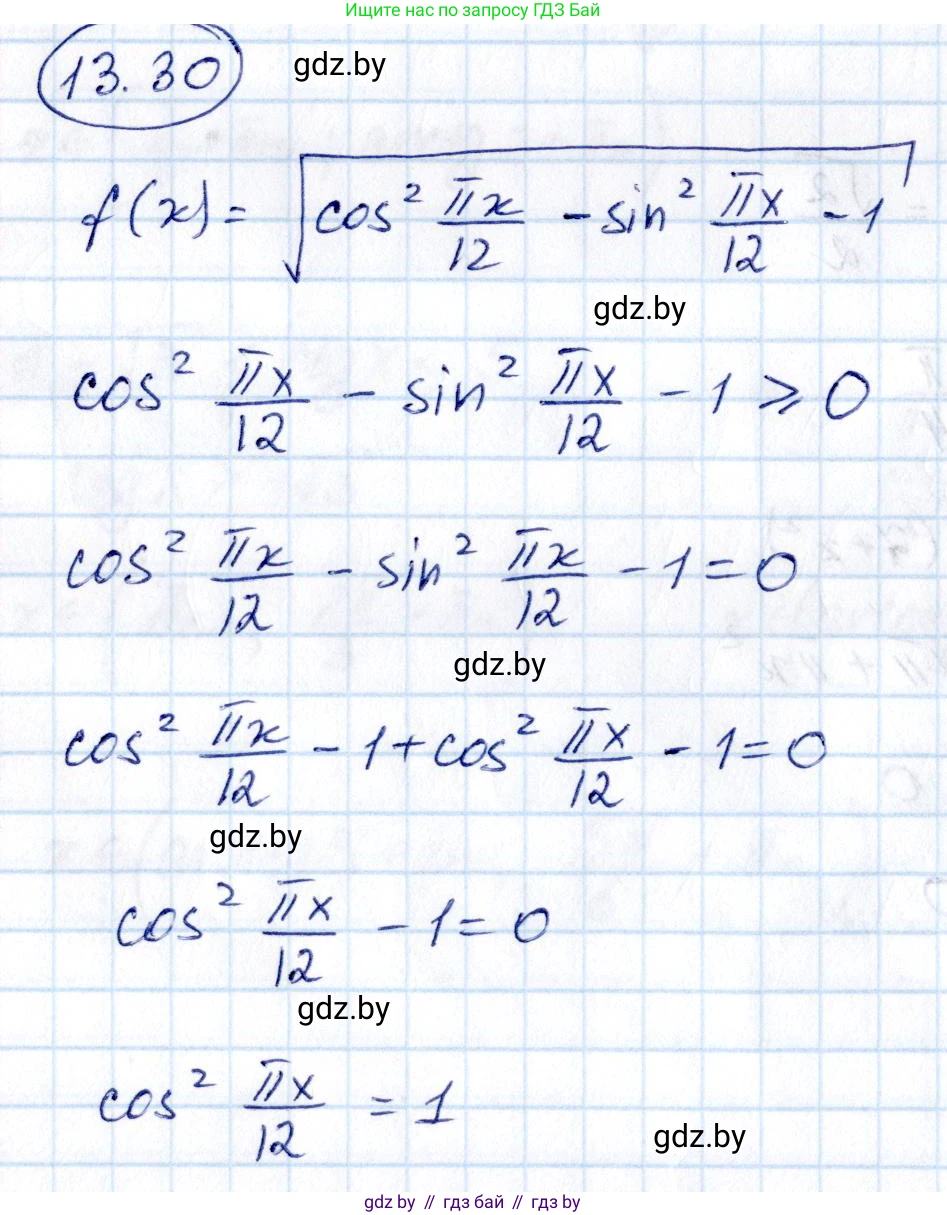 Ищите нас по запросу ГДЗ Бай
13.30 gdz.by
f(x) = √(cos² πx/12 - sin² πx/12 - 1)
gdz.by
cos² πx/12 - sin² πx/12 - 1 ⩾ 0
cos² πx/12 - sin² πx/12 - 1 = 0
gdz.by
cos² πx/12 - 1 + cos² πx/12 - 1 = 0
gdz.by
cos² πx/12 - 1 = 0
gdz.by
cos² πx/12 = 1
gdz.by
gdz.by // гдз бай // гдз by